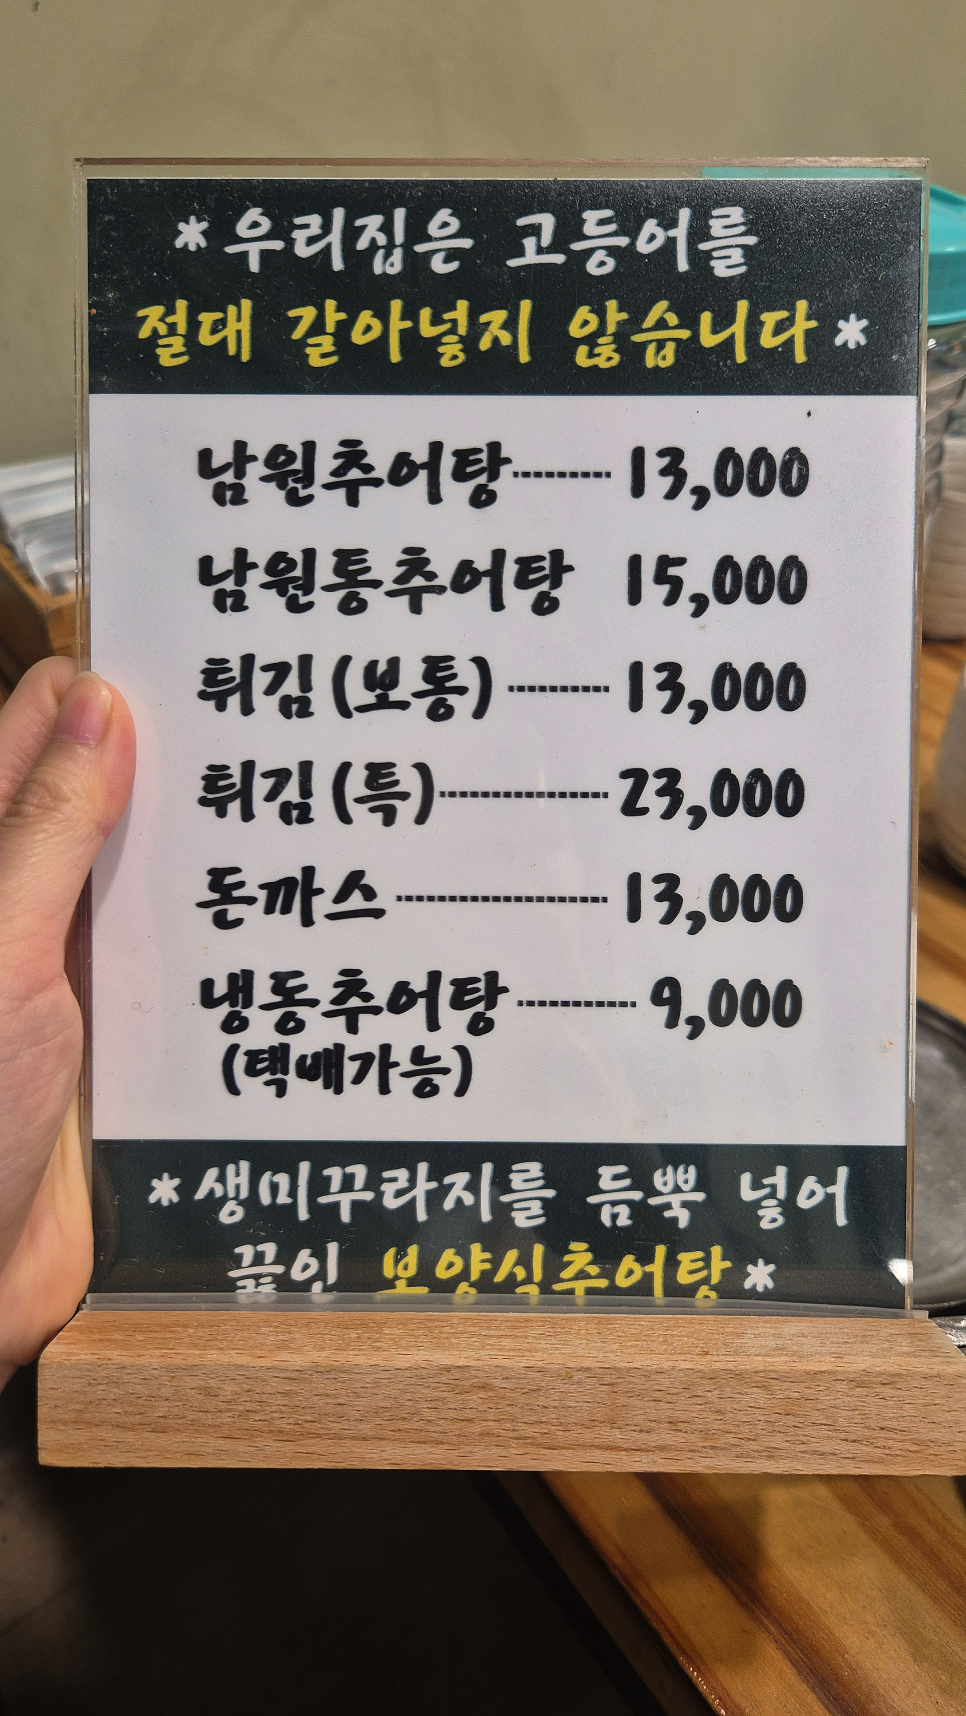 *우리집은 고등어를
절대 갈아넣지 않습니다*
남원추어탕 13,000
남원통추어탕 15,000
튀김(보통) 13,000
튀김(특) 23,000
돈까스 13,000
냉동추어탕 9,000
(택배가능)
*생미꾸라지를 듬뿍 넣어
끓인 보양식추어탕*